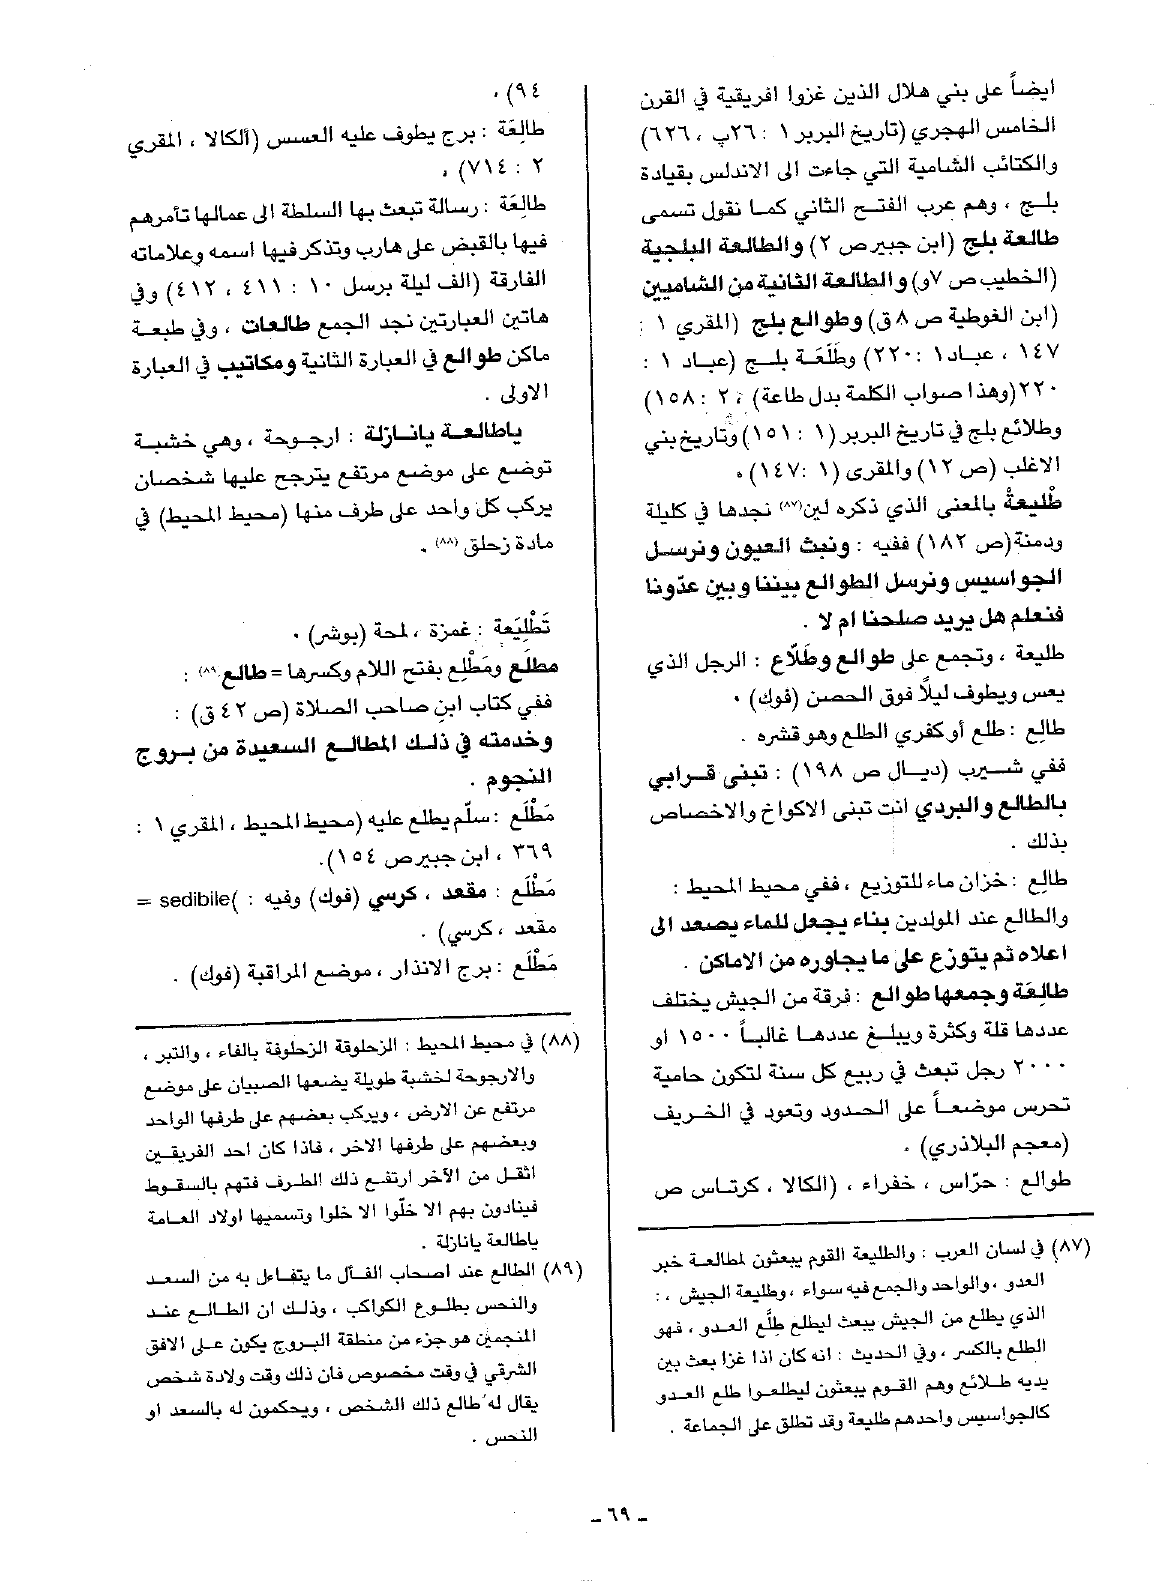 ايضاً على بني هلال الذين غزوا افريقية في القرن
الخامس الهجري (تاريخ البربر ١ : ٢٦ب ، ٦٢٦)
والكتائب الشامية التي جاءت الى الاندلس بقيادة
بلج ، وهم عرب الفتح الثاني كما نقول تسمى
طالعة بلج (ابن جبير ص ٢) والطالعة البلجية
(الخطيب ص ٧و) والطالعة الثانية من الشاميين
(ابن القوطية ص ٨ق) وطوالع بلج (المقري ١ :
١٤٧ ، عباد١ : ٢٢٠) وطَلَعَة بلج (عباد ١ :
٢٢٠(وهذا صواب الكلمة بدل طاعة) ، ٢ : ١٥٨)
وطلائع بلج في تاريخ البربر (١ : ١٥١) وتاريخ بني
الاغلب (ص ١٢) والمقرى (١ : ١٤٧) .
طْليعةٌ بالمعنى الذي ذكره لين(٨٧) نجدها في كليلة
ودمنة(ص ١٨٢) ففيه : ونبث العيون ونرسل
الجواسيس ونرسل الطوالع بيننا وبين عدّونا
فنعلم هل يريد صلحنا ام لا .
طليعة ، وتجمع على طوالع وطلّاع : الرجل الذي
يعس ويطوف ليلاً فوق الحصن (فوك) .
طالِع : طلع أو كفري الطلع وهو قشره .
ففي شيرب (ديال ص ١٩٨) : تبنى قرابي
بالطالع والبردي أنت تبنى الاكواخ والاخصاص
بذلك .
طالِع : خزان ماء للتوزيع ، ففي محيط المحيط :
والطالع عند المولدين بناء يجعل للماء يصعد الى
اعلاه ثم يتوزع على ما يجاوره من الاماكن .
طالِعَة وجمعها طوالع : فرقة من الجيش يختلف
عددها قلة وكثرة ويبلغ عددها غالباً ١٥٠٠ أو
٢٠٠٠ رجل تبعث في ربيع كل سنة لتكون حامية
تحرس موضعاً على الحدود وتعود في الخريف
(معجم البلاذري) .
طوالع : حرّاس ، خفراء ، (الكالا ، كرتاس ص
(٨٧) في لسان العرب : والطليعة القوم يبعثون لمطالعة خبر
العدو ، والواحد والجمع فيه سواء ، وطليعة الجيش ، :
الذي يطلع من الجيش يبعث ليطلع طِلْع العدو ، فهو
الطلع بالكسر ، وفي الحديث : انه كان اذا غزا بعث بين
يديه طلائع وهم القوم يبعثون ليطلعوا طلع العدو
كالجواسيس واحدهم طليعة وقد تطلق على الجماعة .
٩٤) .
طالِعَة : برج يطوف عليه العسس (ألكالا ، المقري
٢ : ٧١٤) .
طالِعَة : رسالة تبعث بها السلطة الى عمالها تأمرهم
فيها بالقبض على هارب وتذكر فيها اسمه وعلاماته
الفارقة (الف ليلة برسل ١٠ : ٤١١ ، ٤١٢) وفي
هاتين العبارتين نجد الجمع طالعات ، وفي طبعة
ماكن طوالع في العبارة الثانية ومكاتيب في العبارة
الاولى .
ياطالعة يانازلة : ارجوحة ، وهي خشبة
توضع على موضع مرتفع يترجح عليها شخصان
يركب كل واحد على طرف منها (محيط المحيط) في
مادة زحلق (٨٨) .
تَطْلِيَعة : غمزة ، لمحة (بوشر) .
مطلَع ومَطْلِع بفتح اللام وكسرها = طالع(٨٩) :
ففي كتاب ابن صاحب الصلاة (ص ٤٢ ق) :
وخدمته في ذلك المطالع السعيدة من بروج
النجوم .
مَطْلَع : سلّم يطلع عليه (محيط المحيط ، المقري ١ :
٣٦٩ ، ابن جبير ص ١٥٤).
مَطْلَع : مقعد ، كرسي (فوك) وفيه : (sedibile =
مقعد ، كرسي) .
مَطْلَع : برج الانذار ، موضع المراقبة (فوك) .
(٨٨) في محيط المحيط : الزحلوقة الزحلوفة بالفاء ، والتبر ،
والارجوحة لخشبة طويلة يضعها الصبيان على موضع
مرتفع عن الارض ، ويركب بعضهم على طرفها الواحد
وبعضهم على طرفها الاخر ، فاذا كان احد الفريقين
اثقل من الآخر ارتفع ذلك الطرف فتهم بالسقوط
فينادون بهم الا خلّوا الا خلوا وتسميها اولاد العامة
ياطالعة يانازلة .
(٨٩) الطالع عند اصحاب الفأل ما يتفاءل به من السعد
والنحس بطلوع الكواكب ، وذلك ان الطالع عند
المنجمين هو جزء من منطقة البروج يكون على الافق
الشرقي في وقت مخصوص فان ذلك وقت ولادة شخص
يقال له طالع ذلك الشخص ، ويحكمون له بالسعد او
النحس .
ـ ٦٩ ـ